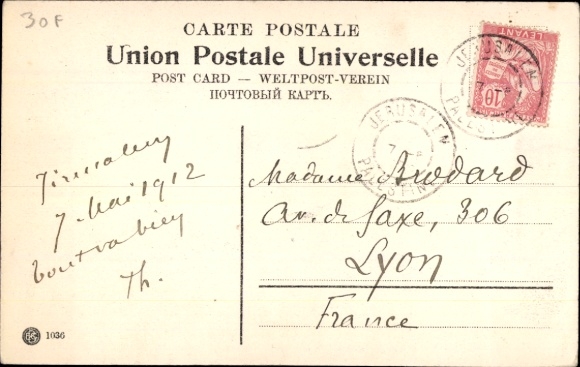 30F
CARTE POSTALE
Union Postale Universelle
POST CARD — WELTPOST-VEREIN
ПОЧТОВЫЙ КАРТЪ.
LEVANT
10
JERUSALEM
PALESTINE
JERUSALEM
PALESTINE
Jérusalem
7 Mai 1912
tout va bien
Th.
Madame Brodard
Av. de Saxe, 306
Lyon
France
1036